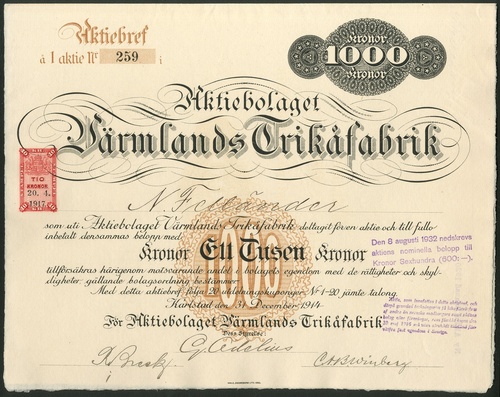 Aktiebref
à 1 aktie Nr 259 i
Kronor
1000
Kronor
Aktiebolaget
Värmlands Trikåfabrik
TIO
KRONOR
20. 4.
1917
N. Felländer
som uti Aktiebolaget Värmlands Trikåfabrik deltagit för en aktie och till fullo
inbetalt densammas belopp med
Kronor Ett Tusen Kronor
1000
tillförsäkras härigenom motsvarande andel i bolagets egendom med de rättigheter och skyl-
digheter, gällande bolagsordning bestämmer.
Med detta aktiebref följa 20 utdelningskuponger Nr 1-20 jämte talong.
Karlstad den 31 December 1914.
För Aktiebolaget Värmlands Trikåfabrik
Dess Styrelse:
Den 8 augusti 1932 nedskrevs
aktiens nominella belopp till
Kronor Sexhundra (600:—).